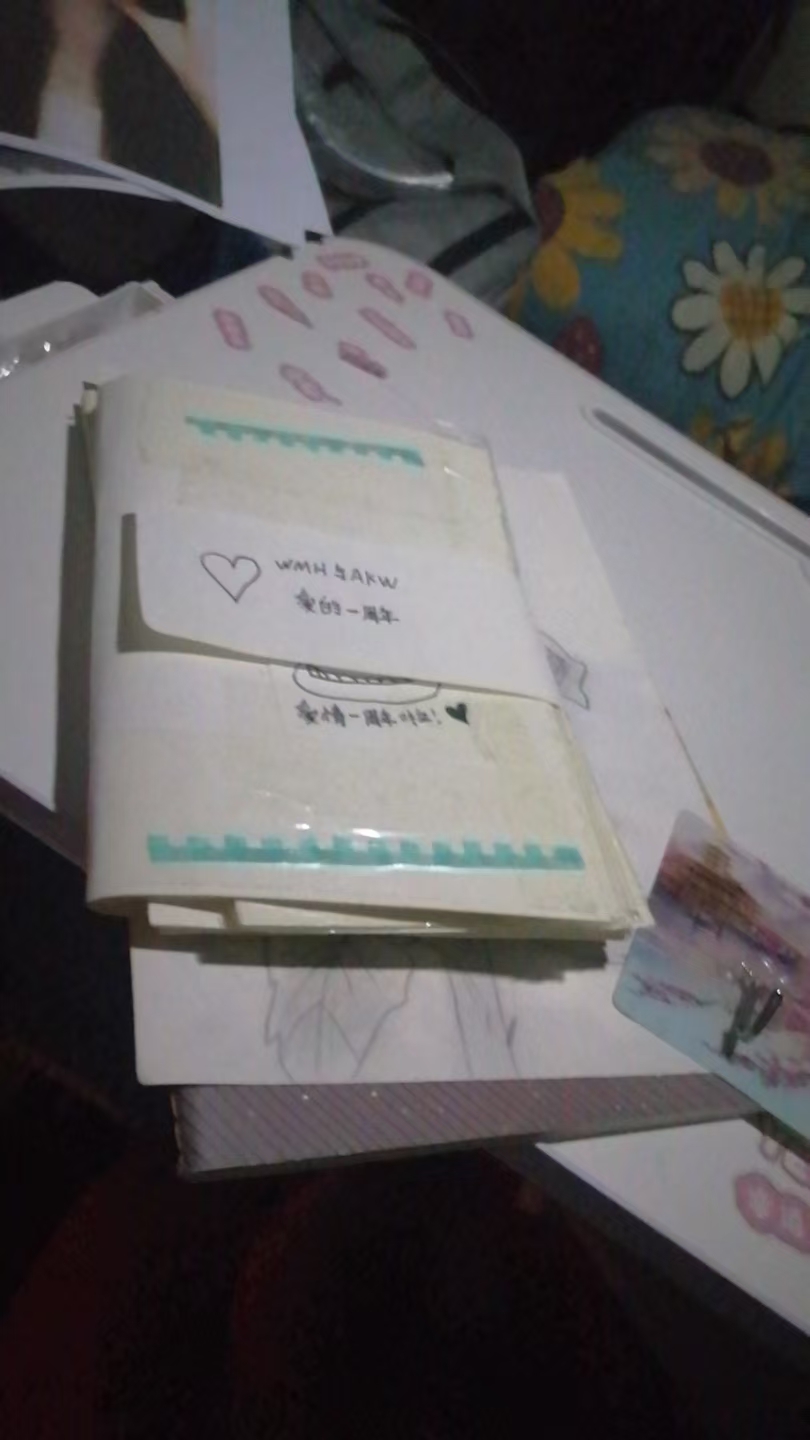 WMH与AKW
爱的一周年
爱情一周年